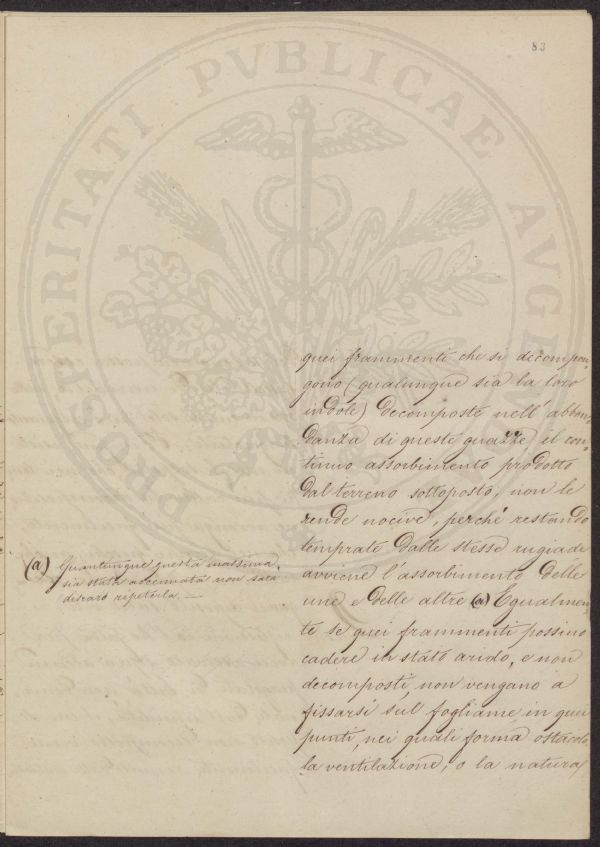 83
PROSPERITATI PVBLICAE AVGENDAE
quei frammenti che si decompon-
gono (qualunque sia la loro
indole) decomposte nell'abbon-
danza di queste guazze il con-
tinuo assorbimento prodotto
dal terreno sottoposto, non le
rende nocive, perché restando
temprate dalle stesse rugiade
avviene l'assorbimento delle
une e delle altre (a) Egualmen-
te se quei frammenti possino
cadere in stato arido, e non
decomposti, non vengano a
fissarsi sul fogliame in quei
punti, nei quali forma ostacolo
la ventilazione, o la natura
(a) Quantunque questa massima
sia stata accennata non sarà
discaro ripeterla. —